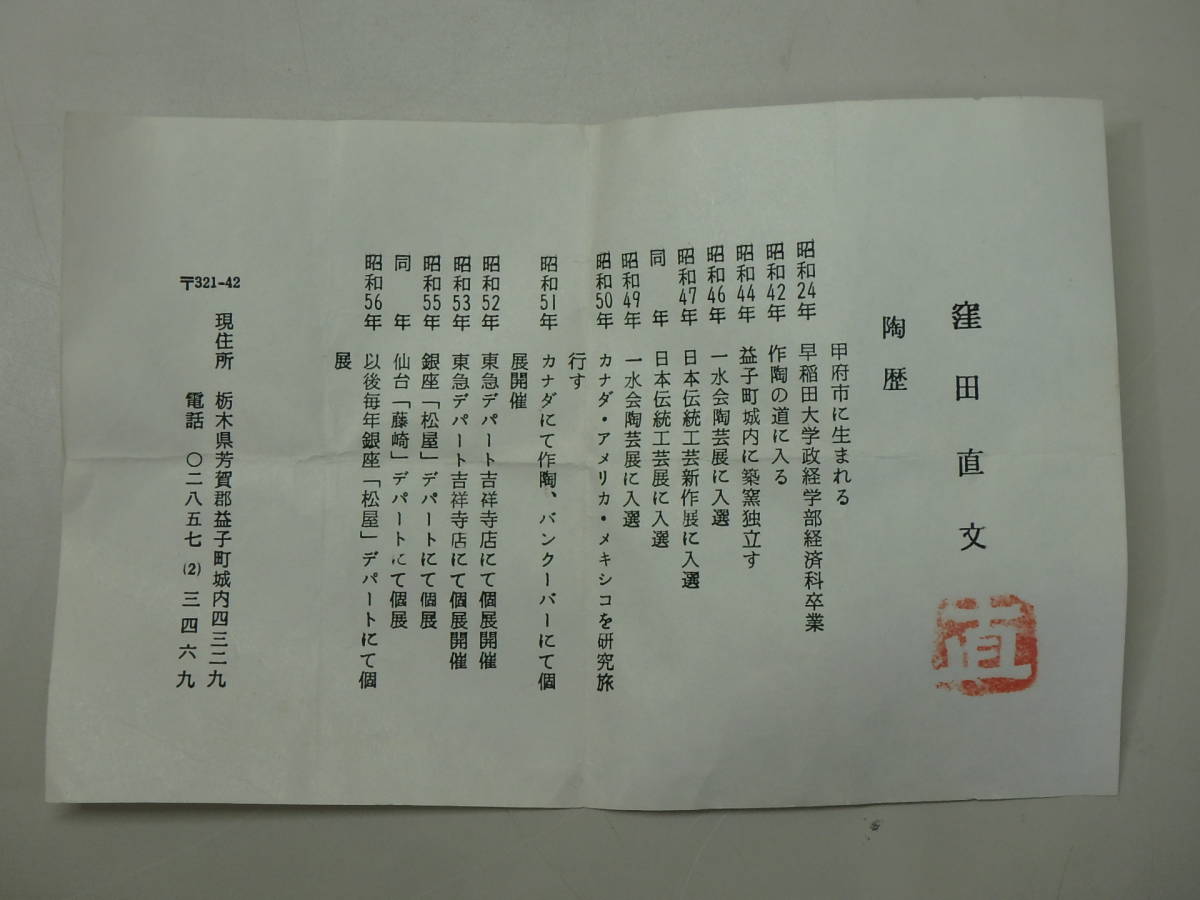 窪田直文
直
陶歴
甲府市に生まれる
昭和24年 早稲田大学政経学部経済科卒業
昭和42年 作陶の道に入る
昭和44年 益子町城内に築窯独立す
昭和46年 一水会陶芸展に入選
昭和47年 日本伝統工芸新作展に入選
同年 日本伝統工芸展に入選
昭和49年 一水会陶芸展に入選
昭和50年 カナダ・アメリカ・メキシコを研究旅
行す
昭和51年 カナダにて作陶、バンクーバーにて個
展開催
昭和52年 東急デパート吉祥寺店にて個展開催
昭和53年 東急デパート吉祥寺店にて個展開催
昭和55年 銀座「松屋」デパートにて個展
同年 仙台「藤崎」デパートにて個展
昭和56年 以後毎年銀座「松屋」デパートにて個
展
〒321-42
現住所 栃木県芳賀郡益子町城内四三二九
電話 〇二八五七(2)三四六九